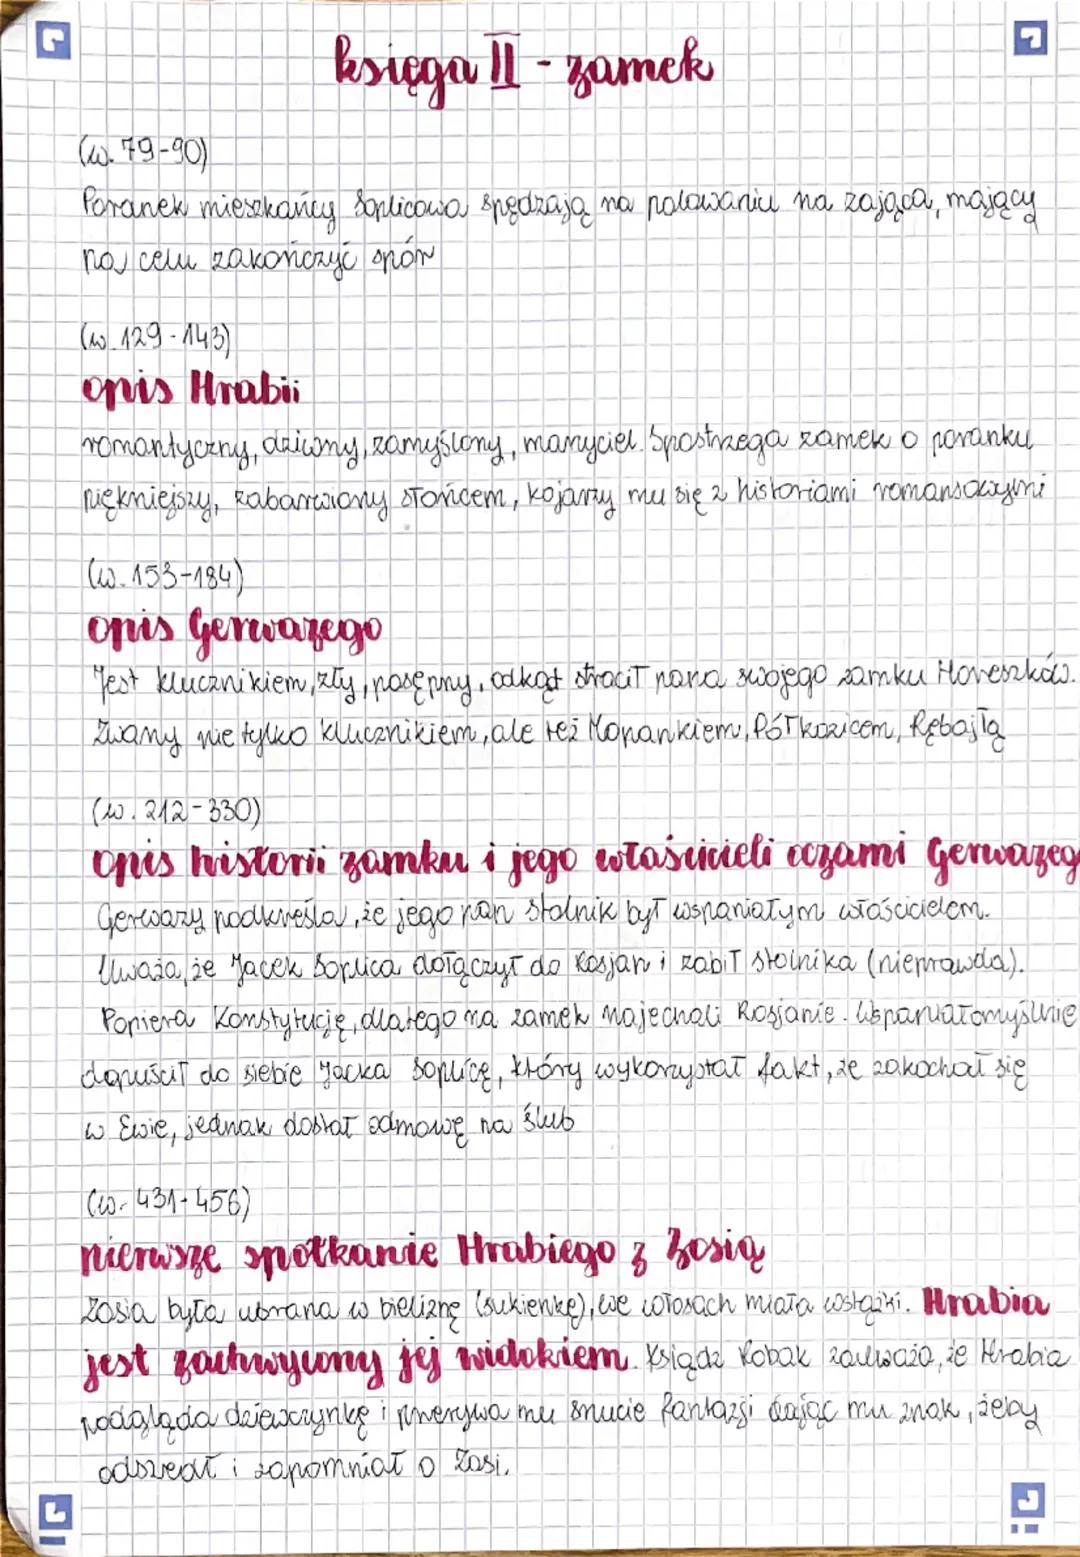 księga II - zamek
(w. 79-90)
Poranek mieszkańcy Soplicowa spędzają na polowaniu na zająca, mający
na celu zakończyć spór
(w. 129-143)
opis Hrabii
romantyczny, dziwny, zamyślony, marzyciel. Spostrzega zamek o poranku
piękniejszy, zabarwiony słońcem, kojarzy mu się z historiami romansowymi
(w. 153-184)
opis Gerwazego
Jest klucznikiem, zły, posępny, odkąd stracił pana swojego zamku Horeszków.
Zwany nie tylko klucznikiem, ale też Mopankiem, Półkozicem, Rębajłą
(w. 212-330)
opis historii zamku i jego właścicieli oczami Gerwazeg
Gerwazy podkreśla, że jego pan stolnik był wspaniałym właścicielem.
Uważa, że Jacek Soplica dołączył do Rosjan i zabił stolnika (nieprawda).
Popiera Konstytucję, dlatego na zamek najechali Rosjanie. Wspaniałomyślnie
dopuścił do siebie Jacka Soplicę, który wykorzystał fakt, że zakochał się
w Ewie, jednak dostał odmowę na ślub
(w. 431-456)
pierwsze spotkanie Hrabiego z Zosią
Zosia była ubrana w bieliznę (sukienkę), we włosach miała wstążki. Hrabia
jest zachwycony jej widokiem. Ksiądz Robak zauważa, że Hrabia
podgląda dziewczynkę i przerywa mu snucie fantazji dając mu znak, żeby
odszedł i zapomniał o Zosi.